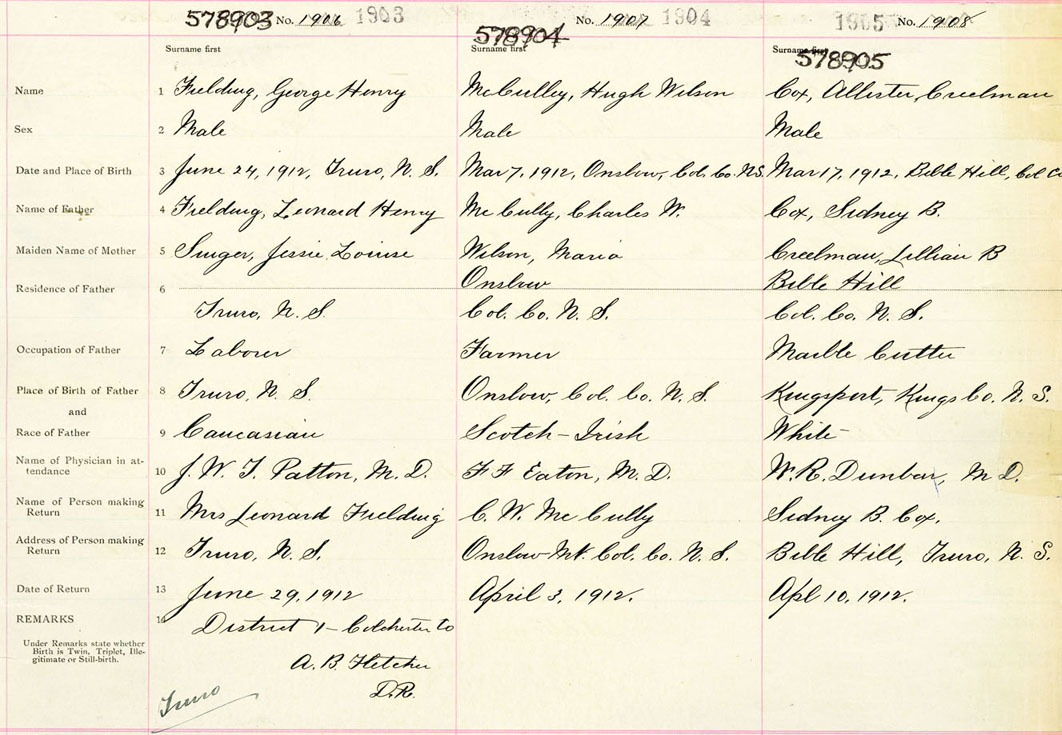 578903 No. 1906 1903 No. 1907 1904 1905 No. 1908
578904
Surname first Surname first Surname first
578905
Name 1 Fielding, George Henry McCulley, Hugh Wilson Cox, Allister Creelman
Sex 2 Male Male Male
Date and Place of Birth 3 June 24, 1912, Truro, N. S. Mar 7, 1912, Onslow, Col. Co. N.S. Mar 17, 1912, Bible Hill, Col Co
Name of Father 4 Fielding, Leonard Henry McCully, Charles W. Cox, Sidney B.
Maiden Name of Mother 5 Singer, Jessie Louise Wilson, Maria Creelman, Lillian B
Onslow Bible Hill
Residence of Father 6
Truro, N. S. Col. Co. N. S. Col. Co. N. S.
Occupation of Father 7 Laborer Farmer Marble Cutter
Place of Birth of Father 8 Truro, N. S. Onslow, Col. Co. N. S. Kingsport, Kings Co. N. S.
and
Race of Father 9 Caucasian Scotch-Irish White
Name of Physician in at-
tendance 10 J. W. T. Patton, M. D. F F Eaton, M. D. W. R. Dunbar, M D.
Name of Person making
Return 11 Mrs Leonard Fielding C. W. McCully Sidney B. Cox.
Address of Person making
Return 12 Truro, N. S. Onslow Mt. Col. Co. N. S. Bible Hill, Truro, N. S.
Date of Return 13 June 29, 1912 April 3, 1912. Apl 10, 1912.
REMARKS 14 District 1 - Colchester Co
Under Remarks state whether
Birth is Twin, Triplet, Ille-
gitimate or Still-birth.
A. B Fletcher
D.R.
Truro